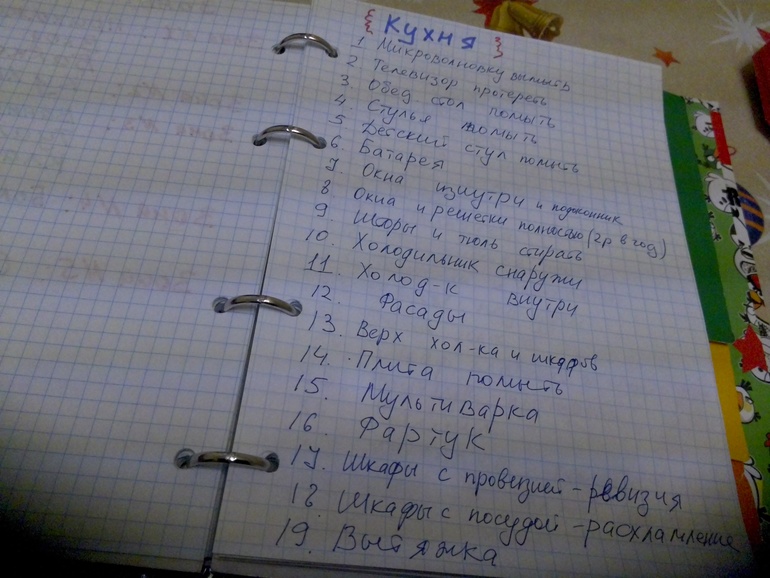 {Кухня}
1 Микроволновку вымыть
2 Телевизор протереть
3. Обед стол помыть
4. Стулья помыть
5 Детский стул помыть
6. Батарея
7. Окна изнутри и подоконник
8 Окна и решетки полностью (2р в год)
9. Шторы и тюль стирать
10. Холодильник снаружи
11. Холод-к внутри
12. Фасады
13. Верх хол-ка и шкафов
14. Плита помыть
15. Мультиварка
16. Фартук
17. Шкафы с провизией - ревизия
18. Шкафы с посудой - расхламление
19. Вытяжка